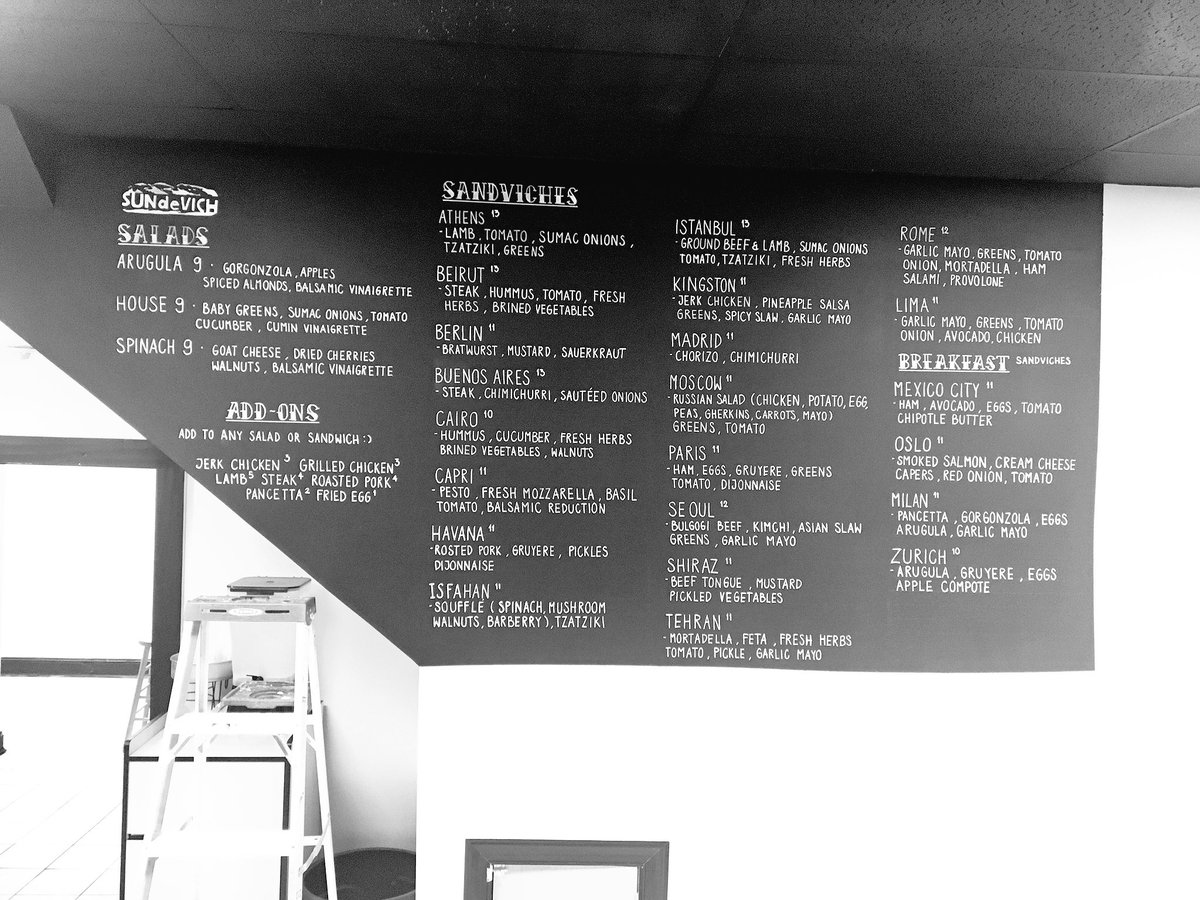 SUNdeVICH
SALADS
ARUGULA 9 · GORGONZOLA, APPLES
SPICED ALMONDS, BALSAMIC VINAIGRETTE
HOUSE 9 · BABY GREENS, SUMAC ONIONS, TOMATO
CUCUMBER, CUMIN VINAIGRETTE
SPINACH 9 · GOAT CHEESE, DRIED CHERRIES
WALNUTS, BALSAMIC VINAIGRETTE
ADD-ONS
ADD TO ANY SALAD OR SANDWICH :)
JERK CHICKEN 3 GRILLED CHICKEN 3
LAMB 5 STEAK 4 ROASTED PORK 4
PANCETTA 2 FRIED EGG 1
SANDVICHES
ATHENS 13
- LAMB, TOMATO, SUMAC ONIONS,
TZATZIKI, GREENS
BEIRUT 13
- STEAK, HUMMUS, TOMATO, FRESH
HERBS, BRINED VEGETABLES
BERLIN 11
- BRATWURST, MUSTARD, SAUERKRAUT
BUENOS AIRES 13
- STEAK, CHIMICHURRI, SAUTÉED ONIONS
CAIRO 10
- HUMMUS, CUCUMBER, FRESH HERBS
BRINED VEGETABLES, WALNUTS
CAPRI 11
- PESTO, FRESH MOZZARELLA, BASIL
TOMATO, BALSAMIC REDUCTION
HAVANA 11
- ROSTED PORK, GRUYERE, PICKLES
DIJONNAISE
ISFAHAN 11
- SOUFFLE (SPINACH, MUSHROOM
WALNUTS, BARBERRY), TZATZIKI
ISTANBUL 13
- GROUND BEEF & LAMB, SUMAC ONIONS
TOMATO, TZATZIKI, FRESH HERBS
KINGSTON 11
- JERK CHICKEN, PINEAPPLE SALSA
GREENS, SPICY SLAW, GARLIC MAYO
MADRID 11
- CHORIZO, CHIMICHURRI
MOSCOW 11
- RUSSIAN SALAD (CHICKEN, POTATO, EGG,
PEAS, GHERKINS, CARROTS, MAYO)
GREENS, TOMATO
PARIS 11
- HAM, EGGS, GRUYERE, GREENS
TOMATO, DIJONNAISE
SEOUL 12
- BULGOGI BEEF, KIMCHI, ASIAN SLAW
GREENS, GARLIC MAYO
SHIRAZ 11
- BEEF TONGUE, MUSTARD
PICKLED VEGETABLES
TEHRAN 11
- MORTADELLA, FETA, FRESH HERBS
TOMATO, PICKLE, GARLIC MAYO
ROME 12
- GARLIC MAYO, GREENS, TOMATO
ONION, MORTADELLA, HAM
SALAMI, PROVOLONE
LIMA 11
- GARLIC MAYO, GREENS, TOMATO
ONION, AVOCADO, CHICKEN
BREAKFAST SANDWICHES
MEXICO CITY 11
- HAM, AVOCADO, EGGS, TOMATO
CHIPOTLE BUTTER
OSLO 11
- SMOKED SALMON, CREAM CHEESE
CAPERS, RED ONION, TOMATO
MILAN 11
- PANCETTA, GORGONZOLA, EGGS
ARUGULA, GARLIC MAYO
ZURICH 10
- ARUGULA, GRUYERE, EGGS
APPLE COMPOTE